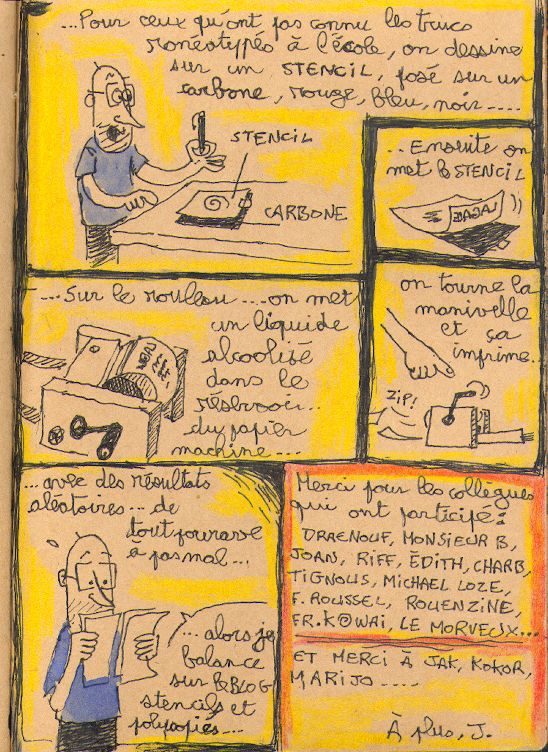 ...Pour ceux qu'ont pas connu les trucs
ronéotypés à l'école, on dessine
sur un STENCIL, posé sur un
carbone, rouge, bleu, noir....
STENCIL
CARBONE
...Ensuite on
met le STENCIL
...Sur le rouleau....on met
un liquide
alcoolisé
dans le
réservoir..
du papier
machine....
on tourne la
manivelle
et ça
imprime..
ZIP!
...avec des résultats
aléatoires... de
tout pourave
à pas mal...
...alors je
balance
sur le BLOG
stencils et
polycopiés...
Merci pour les collègues
qui ont participé:
DRAENOUF, MONSIEUR B,
JOAN, RIFF, ÉDITH, CHARB,
TIGNOUS, MICHAEL LOZE,
F. ROUSSEL, ROUENZINE,
FR.KOWAI, LE MORVEUX...
ET MERCI À JAK, KOKOR,
MARIJO....
À plus, J.